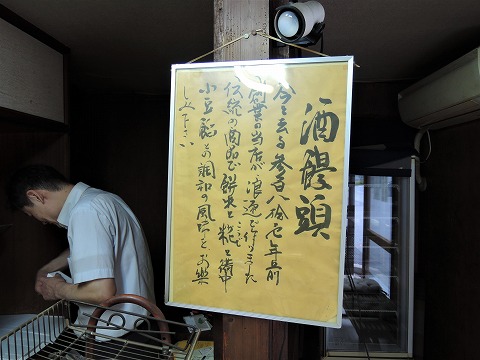 酒饅頭
今を去る参百八拾七年前
創業の当店が浪速で作りました
伝統の酒飩で餅米と糀を
小豆餡との調和の風味をお楽
しみ下さい